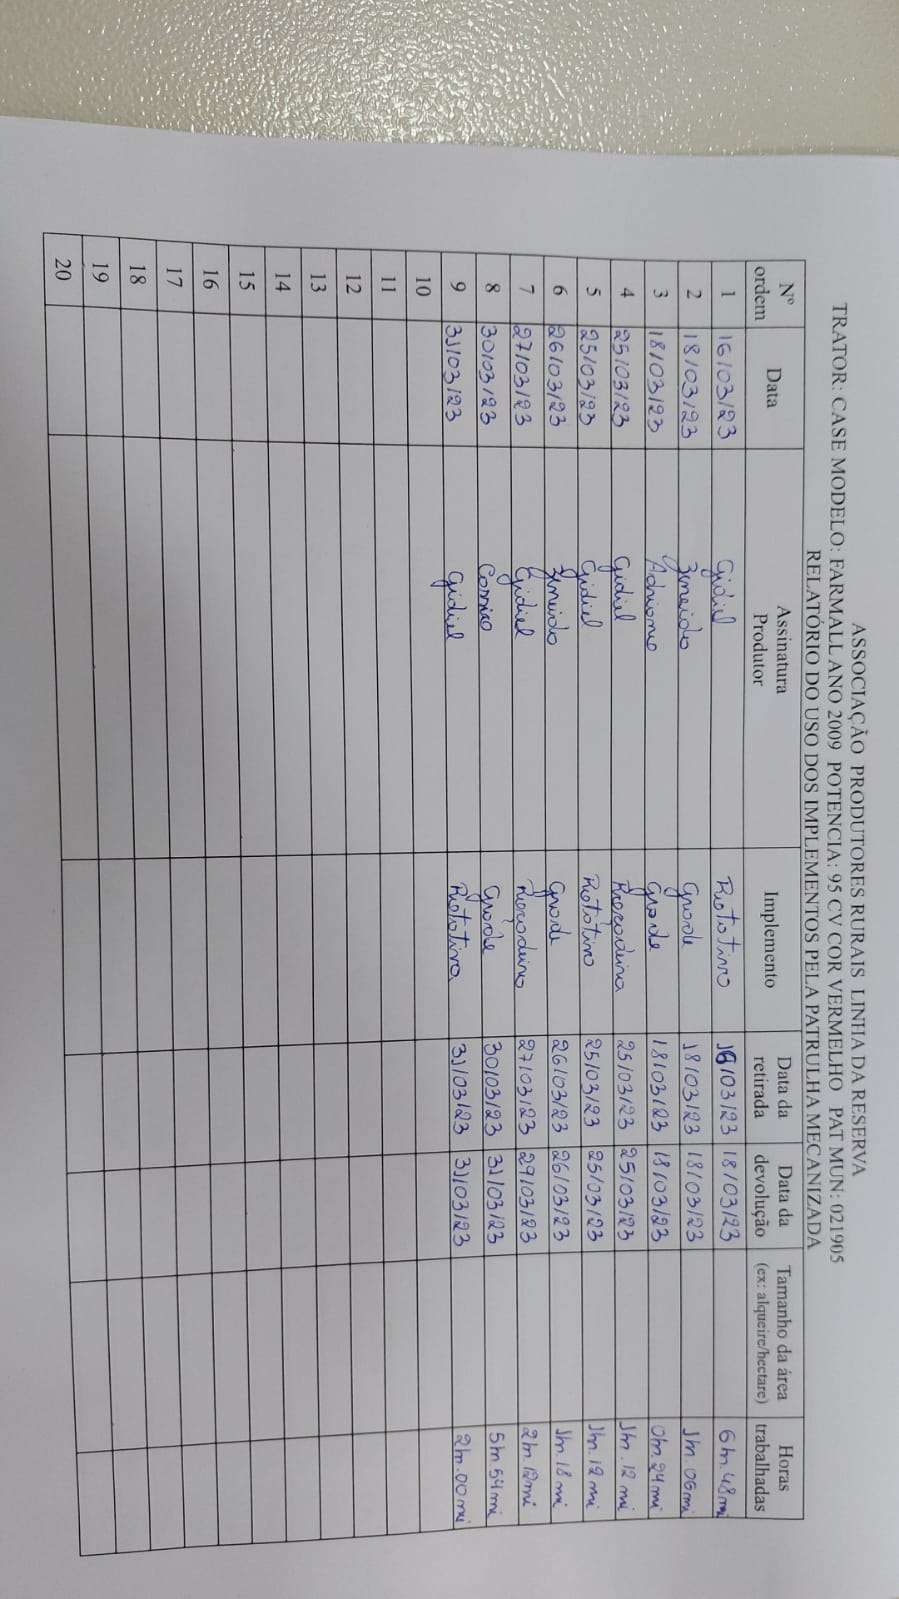 ASSOCIAÇÃO PRODUTORES RURAIS LINHA DA RESERVA
TRATOR: CASE MODELO: FARMALL ANO 2009 POTENCIA: 95 CV COR VERMELHO PAT MUN: 021905
RELATÓRIO DO USO DOS IMPLEMENTOS PELA PATRULHA MECANIZADA
Nº ordem Data Assinatura Produtor Implemento Data da retirada Data da devolução Tamanho da área (ex: alqueire/hectare) Horas trabalhadas
1 16/03/23 Gidiel 16/03/23 18/03/23 6h.48mi
2 18/03/23 Grade 18/03/23 18/03/23 1h.06mi
3 18/03/23 Adriano Grade 18/03/23 18/03/23 0h.24mi
4 25/03/23 Gidiel 25/03/23 25/03/23 1h.12mi
5 25/03/23 Gidiel 25/03/23 25/03/23 1h.12mi
6 26/03/23 Grade 26/03/23 26/03/23 1h.18mi
7 27/03/23 Gidiel 27/03/23 29/03/23 2h.12mi
8 30/03/23 Grade 30/03/23 31/03/23 5h54mi
9 31/03/23 Gidiel 31/03/23 31/03/23 2h.00mi
10
11
12
13
14
15
16
17
18
19
20